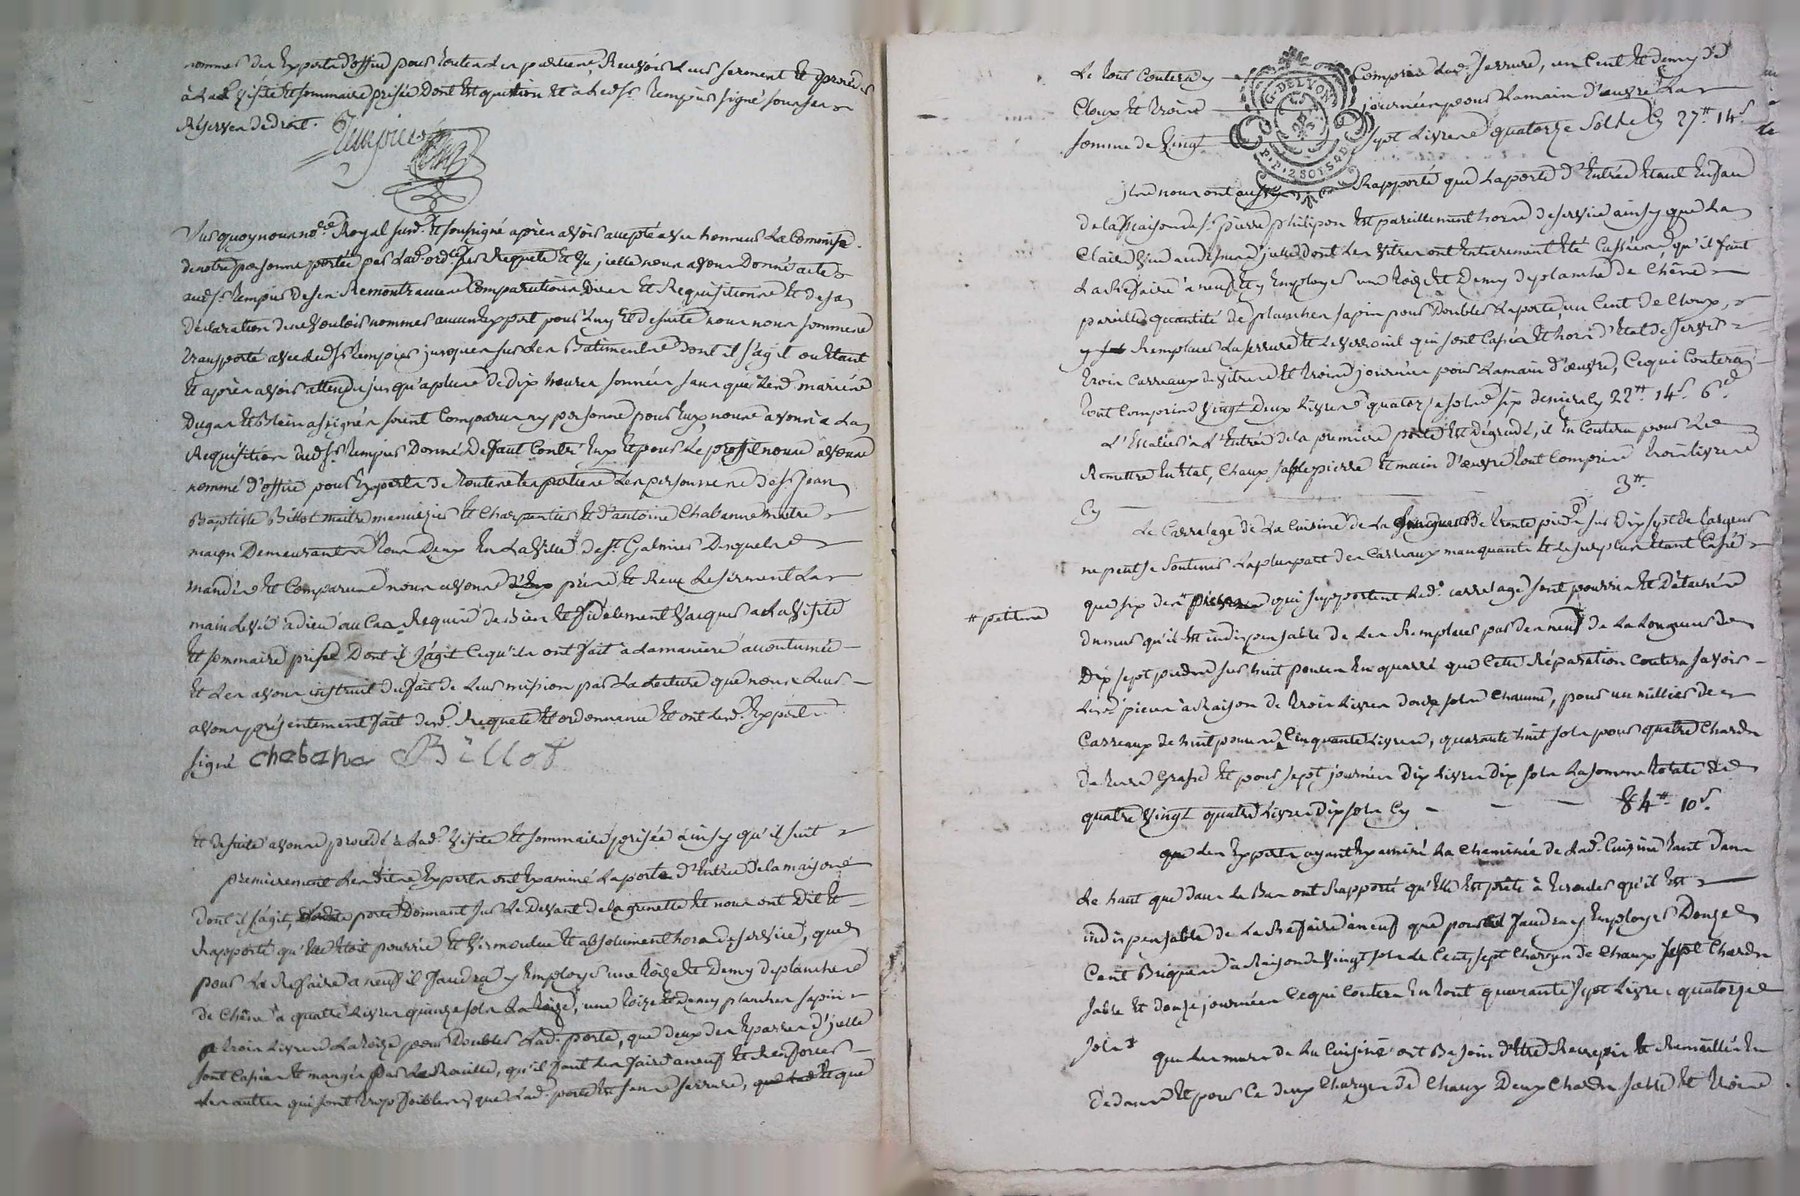 nommer des Experts d'office pour toutes les parties, Recevoir leur serment et proceder
à lad. Visite et sommaire prisée dont est question et a led. Sr. Rempier signé sous ses
Réserves de droit. Rempier
Sur quoy nous no.re Royal susd. et soussigné après avoir accepté avec honneur la Commise.
de notre personne portée par lad. ord.ce sur Requete et qu'jcelle nous avons Donné acte
aud. Sr. Rempier de ses Remontrances Comparution dires et Requisitions et de sa
déclaration de ne vouloir nommer aucun expert pour luy et de suite nous nous sommes
transporté avec led. Sr. Rempier jusques sur les Batiments dont il s'agit ou étant
et après avoir attendu jusqu'aplus de dix heures sonnées sans que lesd. mariés
Dugas et Blein assignés soient Comparus ny personne pour Eux, nous avons à la
Requisition dud. Sr. Rempier Donné Defaut Contre Eux et pour le proffit nous avons
nommé d'office pour Experts de toutes les parties les personnes de Sr. Jean
Baptiste Billot maitre menuizier et Charpentier et d'antoine Chabanne maitre
maçon Demeurants tous Deux En la Ville de St. Galmier Lesquels
mandés et Comparus nous avons pris et Reçu le serment la
main levée à dieu au Cas Requis de Bien et fidelement Vacquer à la Visite
et sommaire prisée Dont il s'agit Ce qu'ils ont fait à la maniere accoutumée
et les avons instruit du fait de leur mission par la lecture que nous leur
avons présentement fait desd. Requete et ordonnance et ont lesd. Experts
signé chabana Billot
Et de suite avons procédé à lad. Visite et sommaire prisée ainsy qu'il suit
premierement les dits Experts ont Examiné la porte d'Entrée de la maison
dont il s'agit, porte Donnant sur le Devant de la grenette et nous ont Dit et
Rapporté qu'Elle étoit pourrie et Virmoulue et absolument hors de service, que
pour la Refaire a neuf il faudra y Employer une toize et Demy de planches
de Chêne à quatre Livres quinze sols la toize, une toize et demy planches sapin
a trois Livres la toize pour Doubler lad. porte, que deux des Eparres d'jcelle
sont Cassées et mangés par la Rouille, qu'il faut les faire a neuf et Renforcer
les autres qui sont trop foibles, que lad. porte est sans serrure, et que
Le tout Coutera y Compris lad. serrure, un Cent et demy de
Cloux et trois journées pour la main d'œuvre la
somme de Vingt sept Livres quatorze Sols Cy 27tt 14s.
G. DE LYON
P. P. 2 SOLS 4 D.
jls nous ont aussy Rapporté que la porte d'Entrée étant En face
de la Maison du Sr. pierre philipon est pareillement hors de service ainsy que la
Claire Vue au dessus d'jcelle dont les Vitres ont Entierement été Cassées, qu'il faut
la Refaire à neuf et y Employer une toize et Demy de planche de Chêne
pareille quantité de planches sapin pour Doubler la porte, un Cent de Cloux,
y Remplacer la serrure et le Verrouil qui sont Cassés et hors d'Etat de servir
trois Carreaux de Vitres et trois journées pour la main d'œuvre, Ce qui Coutera
tout Compris Vingt Deux Livres quatorze sols six deniers Cy 22tt 14s. 6d.
L'Escalier à L'Entrée de la premiere porte est Dégradé, il En Coutera pour le
Remettre En Etat, Chaux sable pierre et main d'œuvre tout Compris trois Livres
Cy 3tt.
Le Carrelage de la Cuisine de la longueur de trente pieds sur Dix sept de largeur
ne peut se soutenir la plus part des Carreaux manquants et le surplus étant Cassé
que six des # pieces qui supportent led. carrelage sont pourris et détachés
# petites
du mur qu'il est indispensable de les Remplacer par des neufs de la longueur de
Dix sept pieds sur huit pouces En quarré que Cette Réparation Coutera savoir
lesd. pieces à Raison de trois Livres douze sols Chacune, pour un millier de
Carreaux de huit pouces Cinquante Livres, quarante huit sols pour quatre Chards
de terre Grasse et pour sept journées Dix Livres Dix sols La somme totale de
quatre Vingt quatre Livres Dix sols Cy 84tt 10s.
que Les Experts ayant Examiné la Cheminée de lad. Cuisine tant Dans
le haut que dans le Bas ont Rapporté qu'Elle Est prête à Ecrouler qu'il est
indispensable de la Refaire à neuf que pour Ce il faudra y Employer Douze
Cent Briques à Raison de Vingt sols le Cent, sept Charges de Chaux sept Chards
sable et douze journées Ce qui Coutera En tout quarante sept Livres quatorze
sols
que Les murs de la Cuisine ont Besoin d'être Recrepis et Remaillés En
dedans et pour Ce deux Charges de Chaux Deux Chards sable et trois